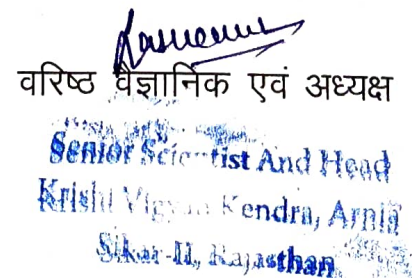 वरिष्ठ वैज्ञानिक एवं अध्यक्ष
Senior Scientist And Head
Krishi Vigyan Kendra, Arnia
Sikar-II, Rajasthan